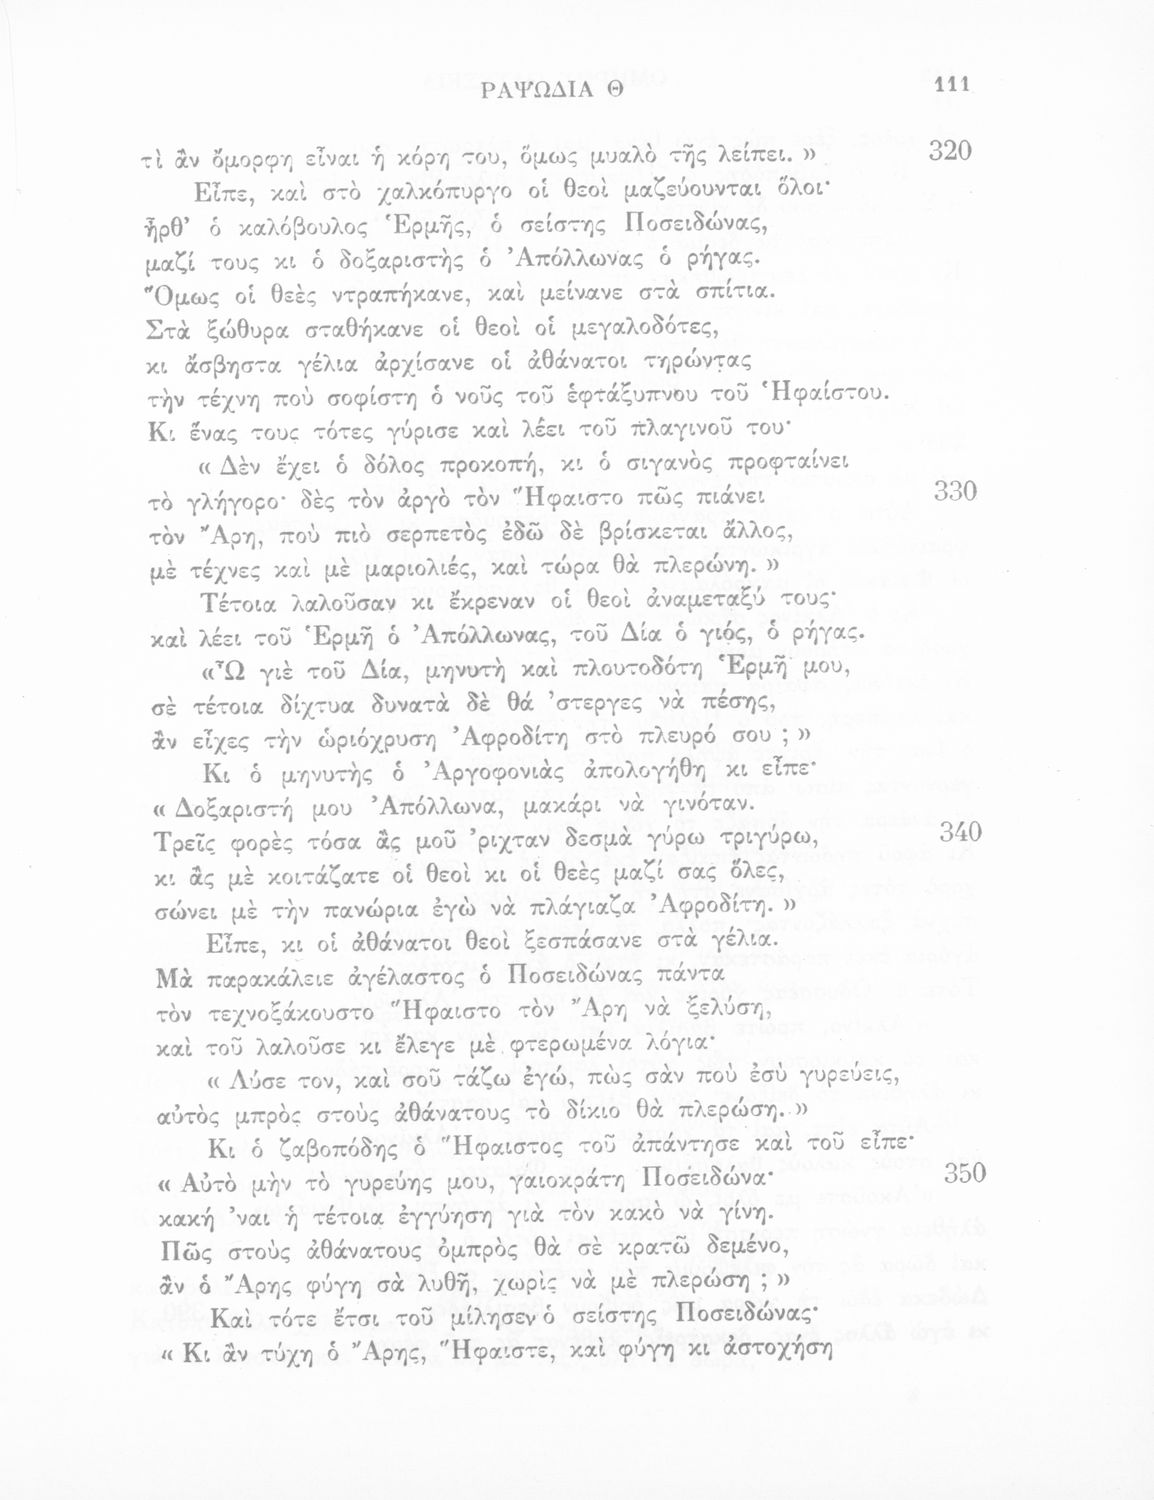 ΡΑΨΩΔΙΑ Θ 111
τὶ ἂν ὄμορφη εἶναι ἡ κόρη του, ὅμως μυαλὸ τῆς λείπει. » 320
Εἶπε, καὶ στὸ χαλκόπυργο οἱ θεοὶ μαζεύουνται ὅλοι·
ἦρθ’ ὁ καλόβουλος Ἑρμῆς, ὁ σείστης Ποσειδώνας,
μαζί τους κι ὁ δοξαριστὴς ὁ Ἀπόλλωνας ὁ ρήγας.
Ὅμως οἱ θεὲς ντραπήκανε, καὶ μείνανε στὰ σπίτια.
Στὰ ξώθυρα σταθήκανε οἱ θεοὶ οἱ μεγαλοδότες,
κι ἄσβηστα γέλια ἀρχίσανε οἱ ἀθάνατοι τηρώντας
τὴν τέχνη ποὺ σοφίστη ὁ νοῦς τοῦ ἑφτάξυπνου τοῦ Ἡφαίστου.
Κι ἕνας τους τότες γύρισε καὶ λέει τοῦ πλαγινοῦ του·
« Δὲν ἔχει ὁ δόλος προκοπή, κι ὁ σιγανὸς προφταίνει
τὸ γλήγορο· δὲς τὸν ἀργὸ τὸν Ἥφαιστο πῶς πιάνει 330
τὸν Ἄρη, ποὺ πιὸ σερπετὸς ἐδῶ δὲ βρίσκεται ἄλλος,
μὲ τέχνες καὶ μὲ μαριολιές, καὶ τώρα θὰ πλερώνη. »
Τέτοια λαλοῦσαν κι ἔκρεναν οἱ θεοὶ ἀναμεταξύ τους·
καὶ λέει τοῦ Ἑρμῆ ὁ Ἀπόλλωνας, τοῦ Δία ὁ γιός, ὁ ρήγας.
«Ὦ γιὲ τοῦ Δία, μηνυτὴ καὶ πλουτοδότη Ἑρμῆ μου,
σὲ τέτοια δίχτυα δυνατὰ δὲ θά ’στεργες νὰ πέσης,
ἂν εἶχες τὴν ὡριόχρυση Ἀφροδίτη στὸ πλευρό σου ; »
Κι ὁ μηνυτὴς ὁ Ἀργοφονιὰς ἀπολογήθη κι εἶπε·
« Δοξαριστή μου Ἀπόλλωνα, μακάρι νὰ γινόταν.
Τρεῖς φορὲς τόσα ἂς μοῦ ’ριχταν δεσμὰ γύρω τριγύρω, 340
κι ἂς μὲ κοιτάζατε οἱ θεοὶ κι οἱ θεὲς μαζί σας ὅλες,
σώνει μὲ τὴν πανώρια ἐγὼ νὰ πλάγιαζα Ἀφροδίτη. »
Εἶπε, κι οἱ ἀθάνατοι θεοὶ ξεσπάσανε στὰ γέλια.
Μὰ παρακάλειε ἀγέλαστος ὁ Ποσειδώνας πάντα
τὸν τεχνοξάκουστο Ἥφαιστο τὸν Ἄρη νὰ ξελύση,
καὶ τοῦ λαλοῦσε κι ἔλεγε μὲ φτερωμένα λόγια·
« Λύσε τον, καὶ σοῦ τάζω ἐγώ, πὼς σὰν ποὺ ἐσὺ γυρεύεις,
αὐτὸς μπρὸς στοὺς ἀθάνατους τὸ δίκιο θὰ πλερώση. »
Κι ὁ ζαβοπόδης ὁ Ἥφαιστος τοῦ ἀπάντησε καὶ τοῦ εἶπε·
« Αὐτὸ μὴν τὸ γυρεύης μου, γαιοκράτη Ποσειδώνα· 350
κακή ’ναι ἡ τέτοια ἐγγύηση γιὰ τὸν κακὸ νὰ γίνη.
Πῶς στοὺς ἀθάνατους ὀμπρὸς θὰ σὲ κρατῶ δεμένο,
ἂν ὁ Ἄρης φύγη σὰ λυθῆ, χωρὶς νὰ μὲ πλερώση ; »
Καὶ τότε ἔτσι τοῦ μίλησεν ὁ σείστης Ποσειδώνας·
« Κι ἂν τύχη ὁ Ἄρης, Ἥφαιστε, καὶ φύγη κι ἀστοχήση